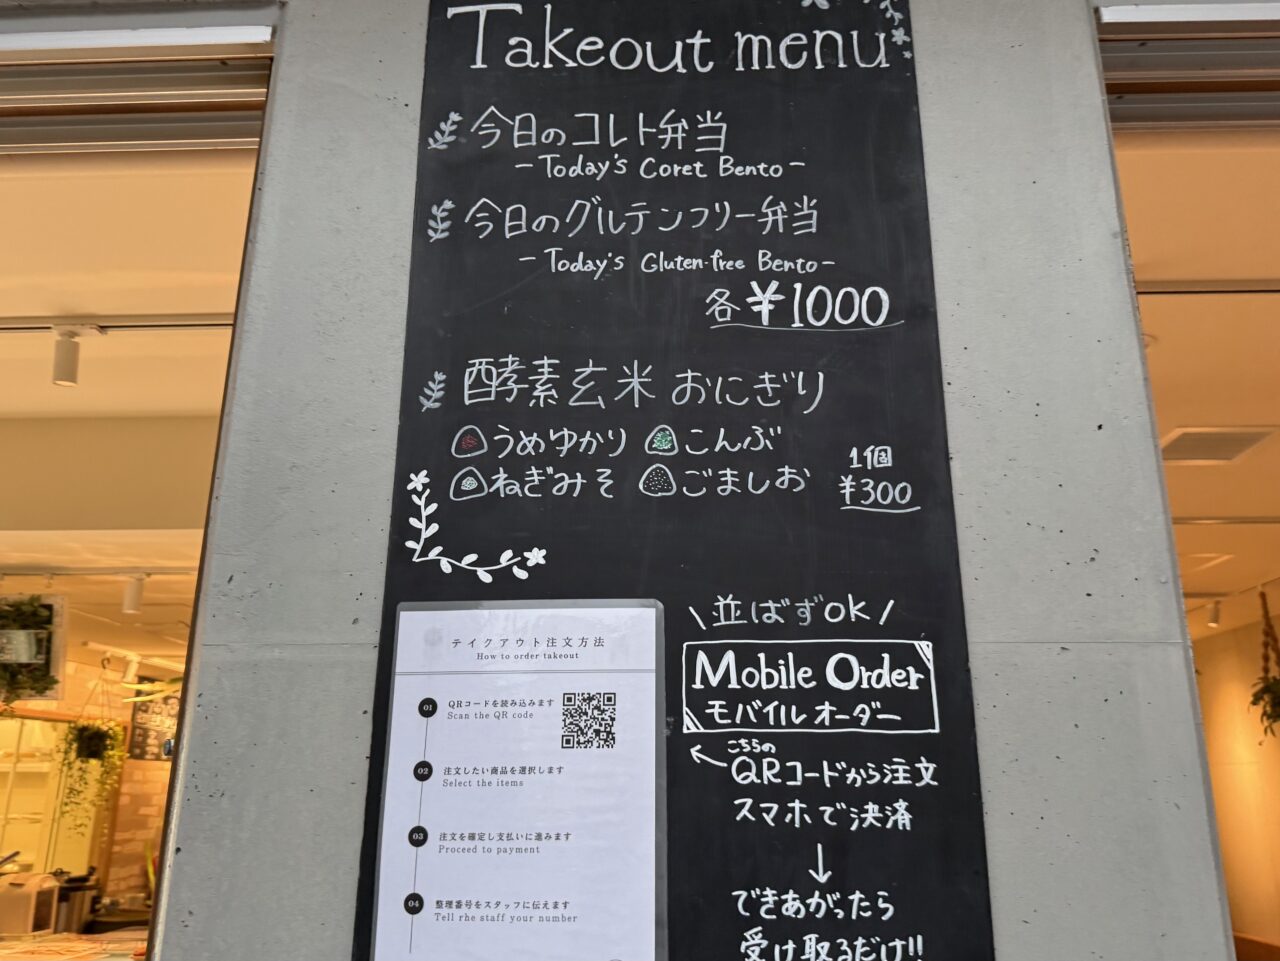 Takeout menu
今日のコレト弁当
- Today's Coret Bento -
今日のグルテンフリー弁当
- Today's Gluten-free Bento -
各¥1000
酵素玄米 おにぎり
うめゆかり こんぶ
ねぎみそ ごましお
1個
¥300
テイクアウト注文方法
How to order takeout
01 QRコードを読み込みます
Scan the QR code
02 注文したい商品を選択します
Select the items
03 注文を確定し支払いに進みます
Proceed to payment
04 整理番号をスタッフに伝えます
Tell rhe staff your number
\ 並ばずOK /
Mobile Order
モバイルオーダー
← こちらの
QRコードから注文
スマホで決済
↓
できあがったら
受け取るだけ!!